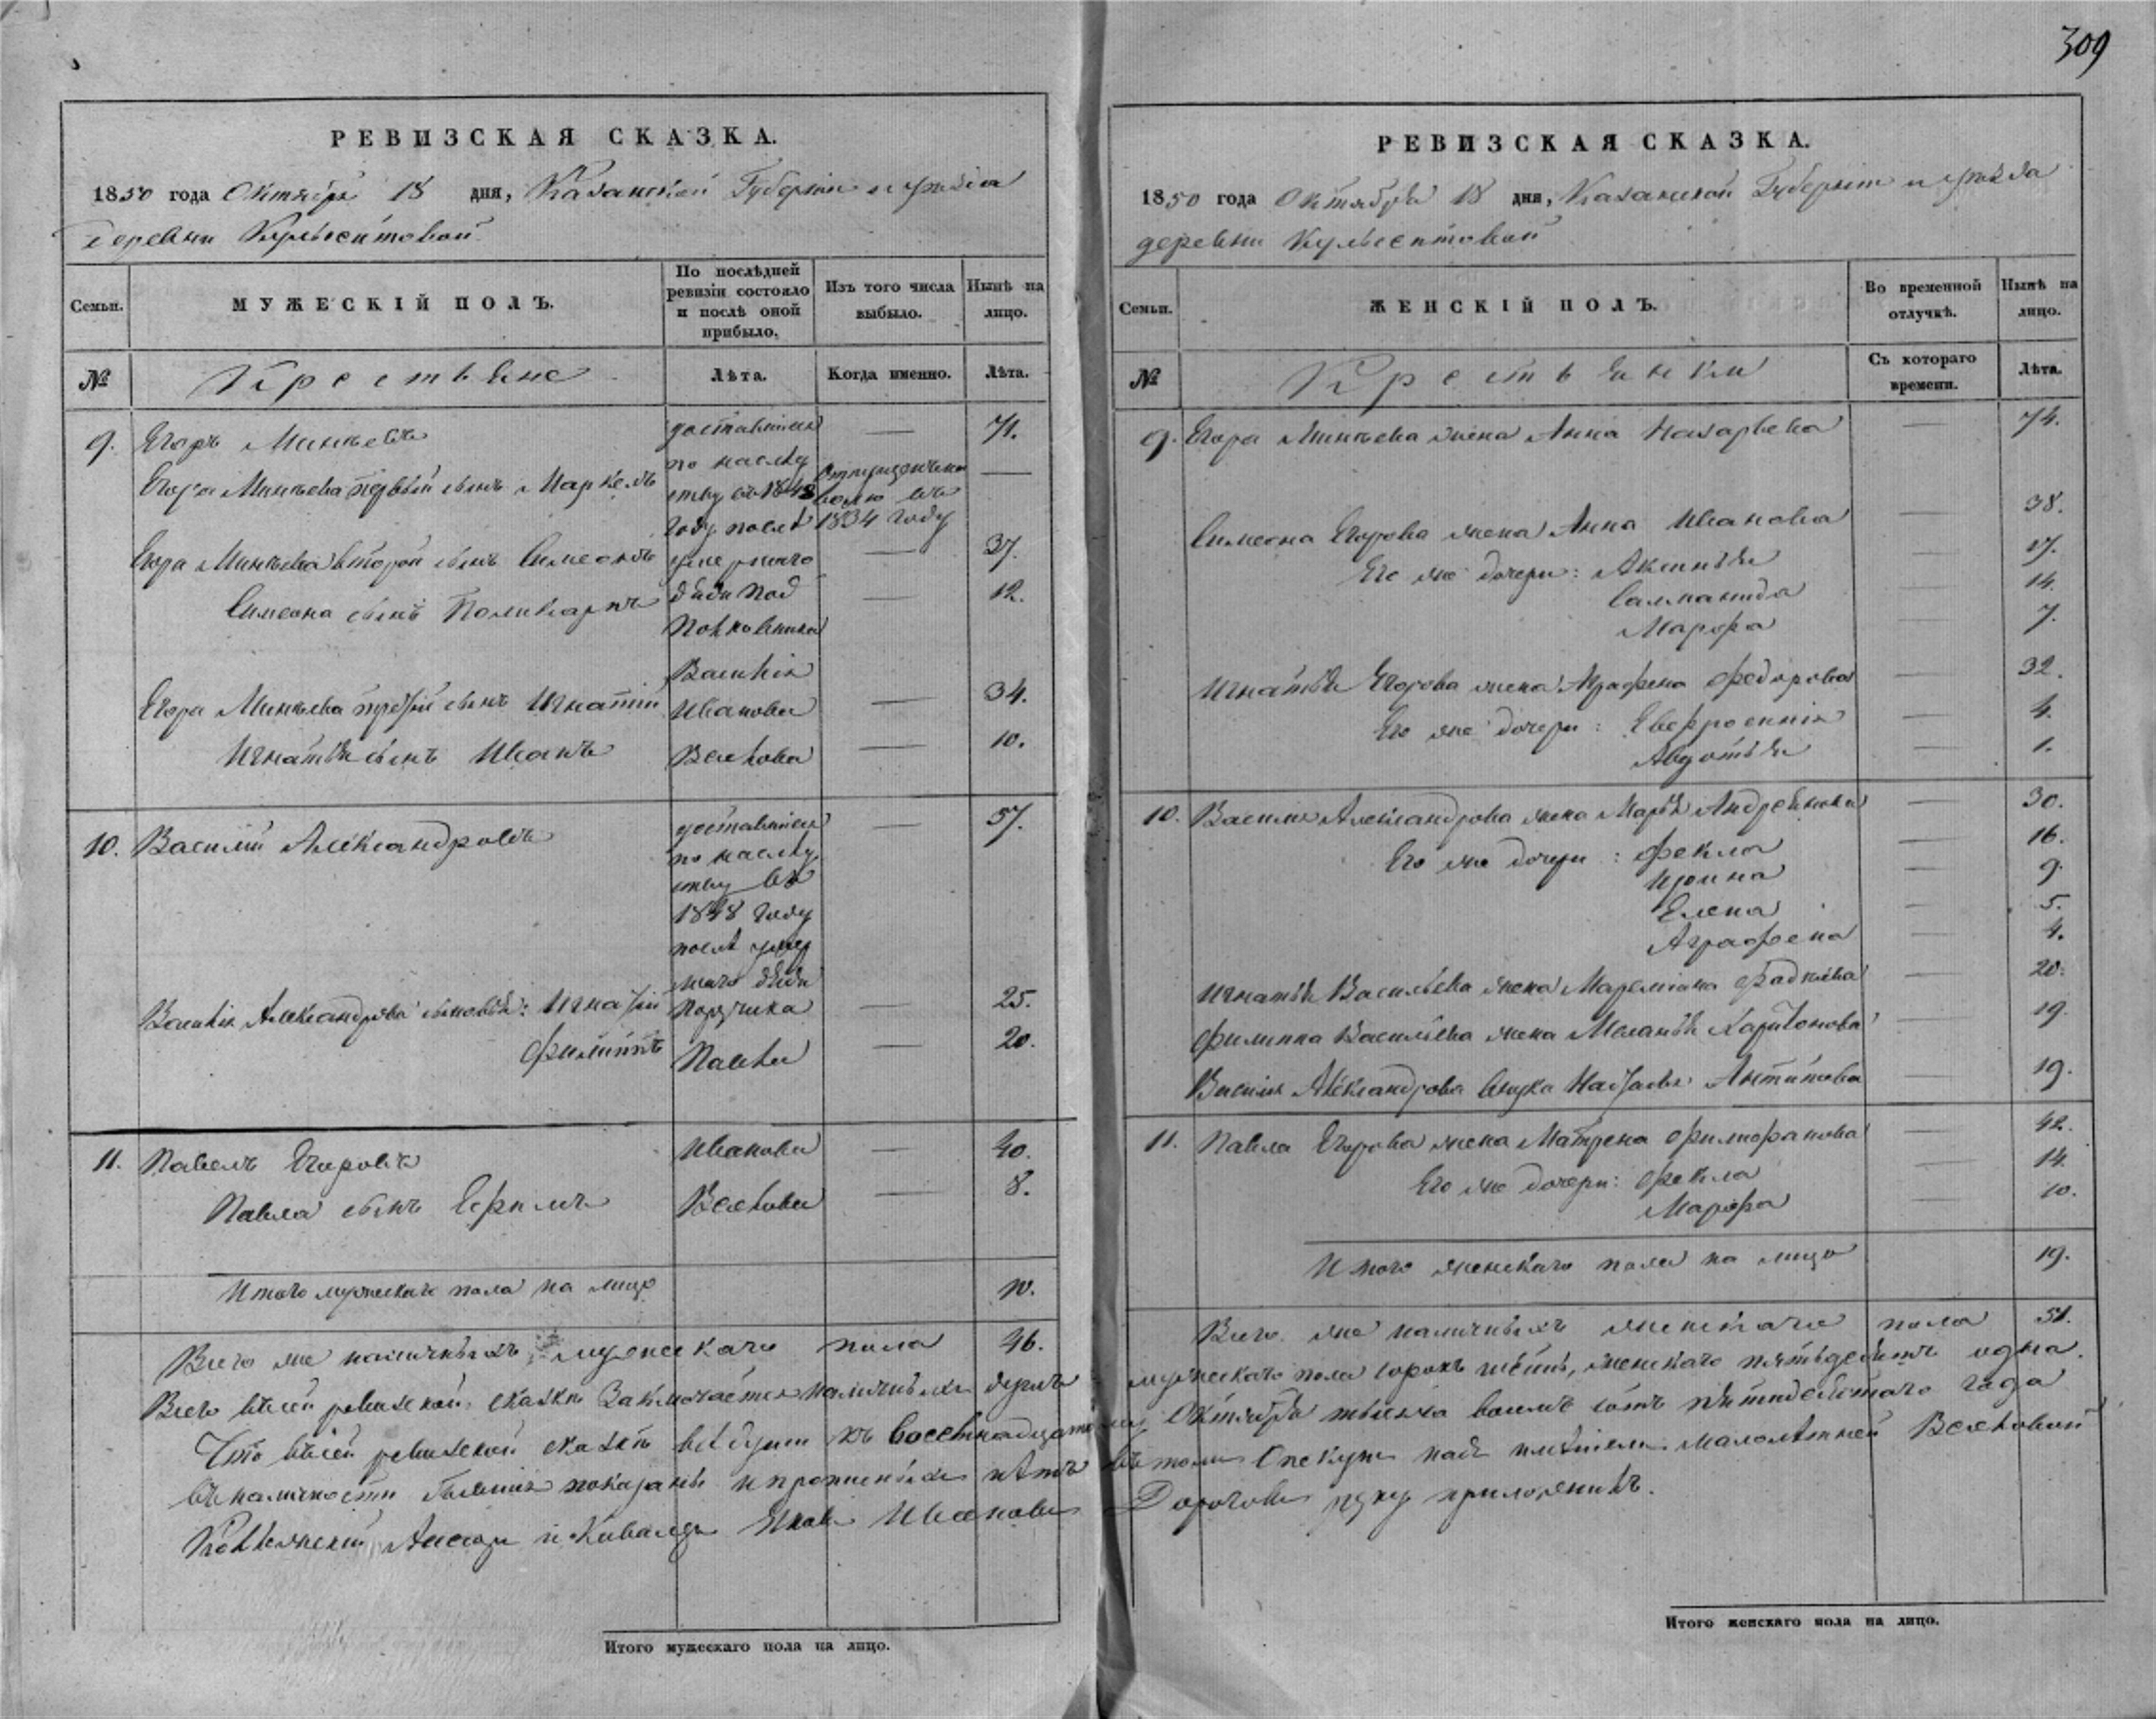 309
РЕВИЗСКАЯ СКАЗКА.
1850 года Октября 18 дня, Казанской Губерніи и уѣзда
деревни
Семьи.
МУЖЕСКІЙ ПОЛЪ.
По послѣдней ревизіи состояло и послѣ оной прибыло.
Изъ того числа выбыло.
Нынѣ на лицо.
№
Крестьяне
Лѣта.
Когда именно.
Лѣта.
9. Егоръ Минѣевъ — 71.
Егора Минѣева первый сынъ Маркелъ
Отпущенъ на волю въ 1834 году —
Егора Минѣева второй сынъ Симеонъ — 37.
Симеона сынъ Поликарпъ — 12.
Егора Минѣева третій сынъ Игнатій — 34.
Игнатья сынъ Иванъ — 10.
доставшіяся
по наслѣд
ству въ 1848
году послѣ
умершаго
дяди Под
Полковника
Василія
Иванова
10. Василій Александровъ — 57.
Василія Александрова сыновья: Игнатій — 25.
Филиппъ — 20.
доставшіяся
по наслѣд
ству въ
1848 году
послѣ умер
шаго дяди
Поручика
Павла
11. Павелъ Егоровъ Иванова — 40.
Павла сынъ Ефимъ — 8.
Итого мужескаго пола на лицо 10.
Всего же наличныхъ мужескаго пола 46.
Всего въ сей ревизской сказкѣ заключается наличныхъ душъ
Что въ сей ревизской сказкѣ
въ наличности показаны и прописныхъ нѣтъ
Иванов
Итого мужескаго пола на лицо.
РЕВИЗСКАЯ СКАЗКА.
1850 года Октября 18 дня, Казанской Губерніи и уѣзда
деревни
Семьи.
ЖЕНСКІЙ ПОЛЪ.
Во временной отлучкѣ.
Нынѣ на лицо.
№
Крестьянки
Съ котораго времени.
Лѣта.
9. Егора Минѣева жена Анна Назарьева — 74.
Симеона Егорова жена Анна Иванова — 38.
Его же дочери: Аксинья — 17.
— 14.
Марфа — 7.
Игнатья Егорова жена Аграфена Федорова — 32.
Его же дочери: Евфросинія — 4.
Авдотья — 1.
10. Василія Александрова жена Марья Андреянова — 30.
Его же дочери: Фекла — 16.
Ирина — 9.
Елена — 5.
Аграфена — 4.
Игнатья Васильева жена Маремьяна Фадѣева — 20.
Филиппа Васильева жена Меланья Харитонова — 19.
Василія Александрова внука Наталья Антипова — 19.
11. Павла Егорова жена Матрена Филиофанова — 42.
Его же дочери: Фекла — 14.
Марфа — 10.
Итого женскаго пола на лицо 19.
Всего же наличныхъ женскаго пола 51.
мужескаго пола сорокъ шесть, женскаго пятьдесятъ одна.
Октября тысяча восемь сотъ пятидесятаго года
въ томъ Опекунъ надъ имѣніемъ малолѣтней
руку приложилъ.
Итого женскаго пола на лицо.